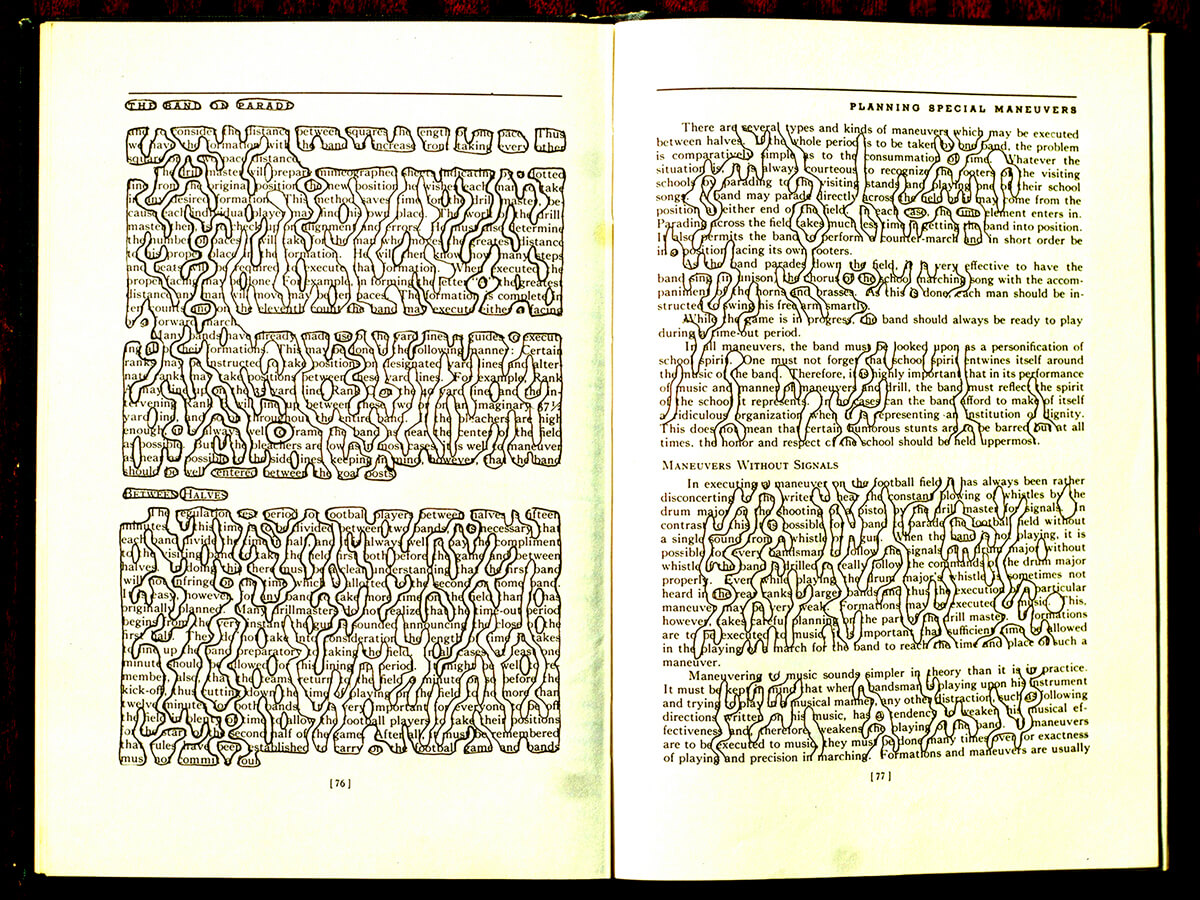 THE BAND ON PARADE
and consider the distance between squares the length of one pace. Thus
we have the formation with the band increase front taking every other
square two space distance.
The drill master will prepare mimeographed sheets indicating by dotted
line from the original position the new position he wishes each man to take
in the desired formation. This method saves time as the drill master, be-
cause each individual player may find his own place. The work of the drill
master then is to check up on alignment and errors. He must also determine
the number of paces it will take for the man who moves the greatest distance
to his proper place in the formation. He will then know how many steps
and beats will be required to execute that formation. When executed the
proper facing may be done. For example, in forming the letter the greatest
distance any man will move may be ten paces. The formation is complete in
ten counts and on the eleventh count the band may execute either a facing
or a forward march.
Many bands have already made use of the yard lines as guides to execut-
ing of their formations. This may be done in the following manner: Certain
ranks may be instructed to take position on designated yard lines and alter-
nate ranks may take positions between these yard lines. For example, Rank
A may line up on the 35 yard line, Rank on the 40 yard line, and the in-
tervening Rank will line up between these two on an imaginary 37½
yard line, and so on throughout the entire band. If the bleachers are high
enough, always frame the band as near the center of the field
as possible. But if the bleachers are low, as most cases, it is well to maneuver
as near as possible to the side lines, keeping in mind, however, that the band
should be well centered between the goal posts.
BETWEEN HALVES
The regulation rest period for football players between halves is fifteen
minutes. If this time is to be divided between two bands, it is necessary that
each band divide the time in half and it is always well to pay the compliment
to the visiting band to take the field first both before the game and between
halves. In doing this there must be a clear understanding that the first band
will not infringe on the time which is allotted to the second or home band.
It is easy, however, for any band to take more time on the field than was
originally planned. Many drillmasters do not realize that the time-out period
begins from the very instant the gun is sounded announcing the close of the
first half. They do not take into consideration the length of time it takes
to line up the band preparatory to taking the field. In all cases at least one
minute should be allowed for this lining up period. It might be well to re-
member, also, that the teams return to the field a minute or so before the
kick-off, thus cutting down the time of playing on the field to no more than
twelve minutes for both bands. It is very important for everyone to be off
the field in plenty of time to allow the football players to take their positions
for the second half of the game. After all, it must be remembered
that rules have been established to carry on the football game and bands
must not commit foul
[ 76 ]
PLANNING SPECIAL MANEUVERS
There are several types and kinds of maneuvers which may be executed
between halves. If the whole period is to be taken by one band, the problem
is comparatively simple as to the consummation of time. Whatever the
situation is, it is always courteous to recognize the rooters of the visiting
schools by parading to the visiting stands and playing one of their school
songs. A band may parade directly across the field or may come from the
position at either end of the field. In each case the time element enters in.
Parading across the field takes much less time in getting the band into position.
It also permits the band to perform a counter-march and in short order be
in a position facing its own rooters.
As the band parades down the field, it is very effective to have the
band sing in unison the chorus of the school marching song with the accom-
paniment of the horns and brasses. As this is done, each man should be in-
structed to swing his free arm smartly.
While the game is in progress, the band should always be ready to play
during a time-out period.
In all maneuvers, the band must be looked upon as a personification of
school spirit. One must not forget that school spirit entwines itself around
the music of the band. Therefore, it is highly important that in its performance
of music and manner of maneuvers and drill, the band must reflect the spirit
of the school it represents. In no cases can the band afford to make of itself
a ridiculous organization when it is representing an institution of dignity.
This does not mean that certain humorous stunts are to be barred but at all
times, the honor and respect of the school should be held uppermost.
MANEUVERS WITHOUT SIGNALS
In executing a maneuver on the football field it has always been rather
disconcerting to the writer to hear the constant blowing of whistles by the
drum major or the shooting of pistol by the drill master as signals. In
contrast to this it is possible for a band to parade the football field without
a single sound from a whistle or gun. When the band is not playing, it is
possible for every bandsman to follow the signals of the drum major without
whistle if the band is drilled to really follow the commands of the drum major
properly. Even while playing, the drum major's whistle is sometimes not
heard in the rear ranks of larger bands and thus the execution of a particular
maneuver may be very weak. Formations may be executed to music. This,
however, takes careful planning on the part of the drill master. If formations
are to be executed to music it is important that sufficient time be allowed
in the playing of a march for the band to reach the time and place of such a
maneuver.
Maneuvering to music sounds simpler in theory than it is in practice.
It must be kept in mind that when a bandsman is playing upon his instrument
and trying to play in a musical manner, any other distraction, such as following
directions written on his music, has a tendency to weaken his musical ef-
fectiveness and therefore weakens the playing of the band. If maneuvers
are to be executed to music they must be done many times over for exactness
of playing and precision in marching. Formations and maneuvers are usually
[ 77 ]